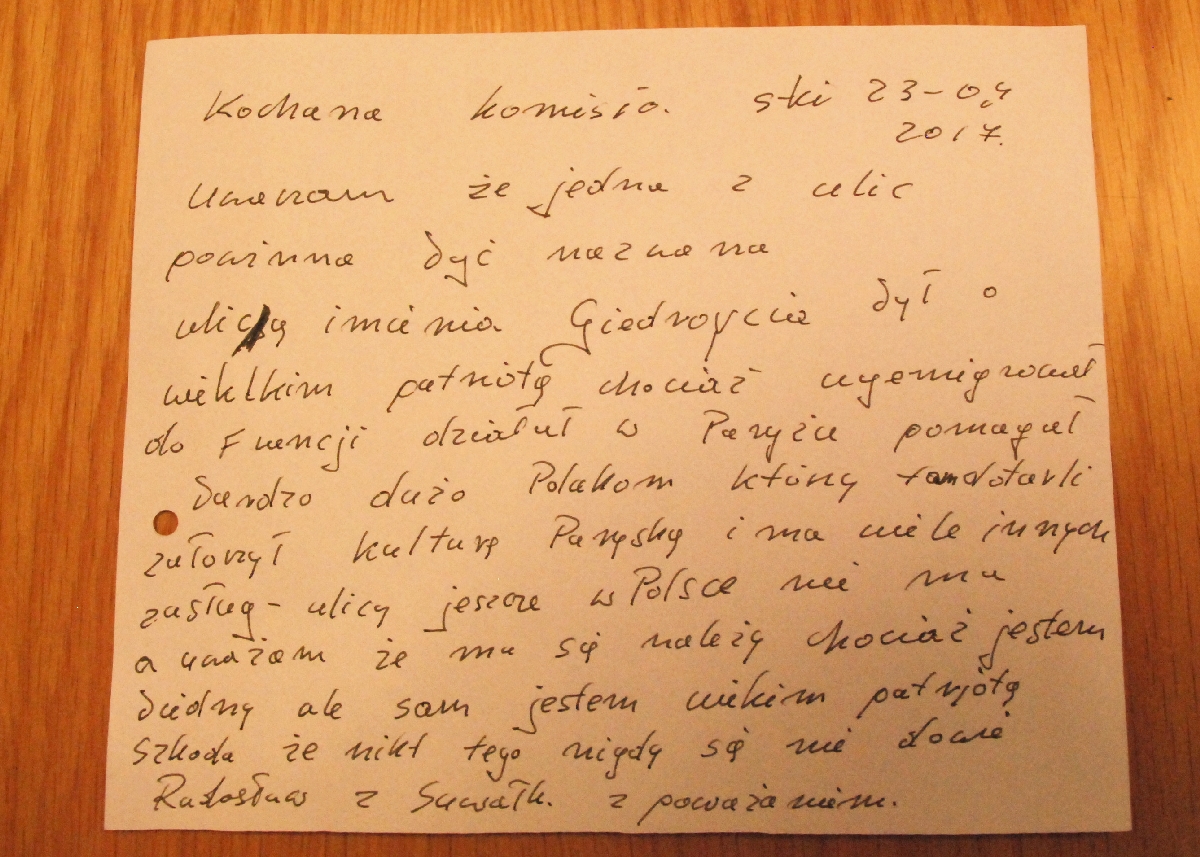 Kochana komisio. ski 23-04
2017.
Uwarzam że jedna z ulic
powinna być nazwana
ulicą imienia Giedroycia był o
wielkim patriotą chociaż wyemigrował
do Francji działał w Paryżu pomagał
bardzo dużo Polakom którzy tam dotarli
załorzył kulturę Paryską i ma wiele innych
zasług - ulicy jeszcze w Polsce nie ma
a uważam że mu się należy chociaż jestem
biedny ale sam jestem wikim patrjotą
szkoda że nikt tego nigdy się nie dowie
Radosław z Suwałk. z poważaniem.